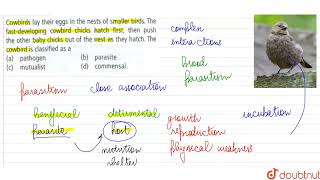 Cowbirds lay their eggs in the nests of smaller birds. The
fast-developing cowbird chicks hatch first, then push
the other baby chicks out of the nest as they hatch. The
cowbird is classified as a
(a) pathogen (b) parasite
(c) mutualist (d) commensal.
complex
interactions
brood
parasitism
parasitism close association
beneficial detrimental growth incubation
parasite host reproduction
nutrition physical weakness
shelter
doubtnut